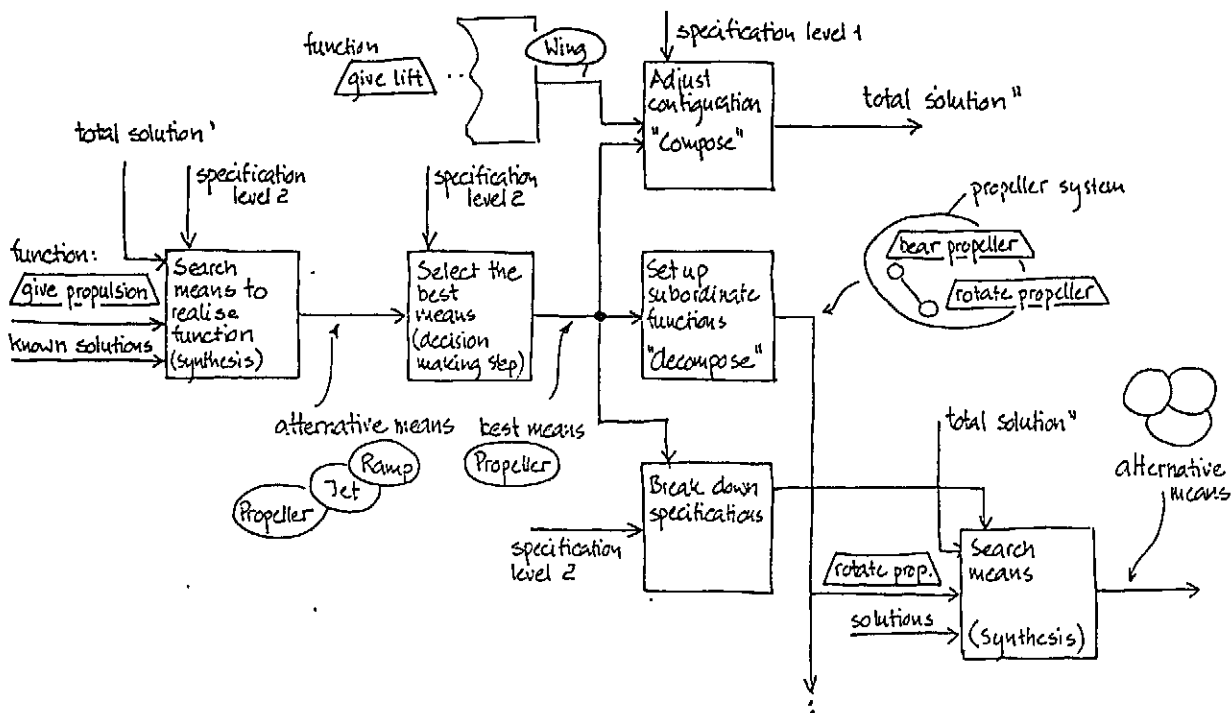 function
give lift
Wing
specification level 1
Adjust
configuration
"Compose"
total solution"
total solution'
specification
level 2
function:
give propulsion
known solutions
Search
means to
realise
function
(synthesis)
specification
level 2
Select the
best
means
(decision
making step)
Set up
subordinate
functions
"decompose"
propeller system
bear propeller
rotate propeller
alternative means
Ramp
Jet
Propeller
best means
Propeller
Break down
specifications
specification
level 2
total solution"
alternative
means
rotate prop.
solutions
Search
means
(Synthesis)